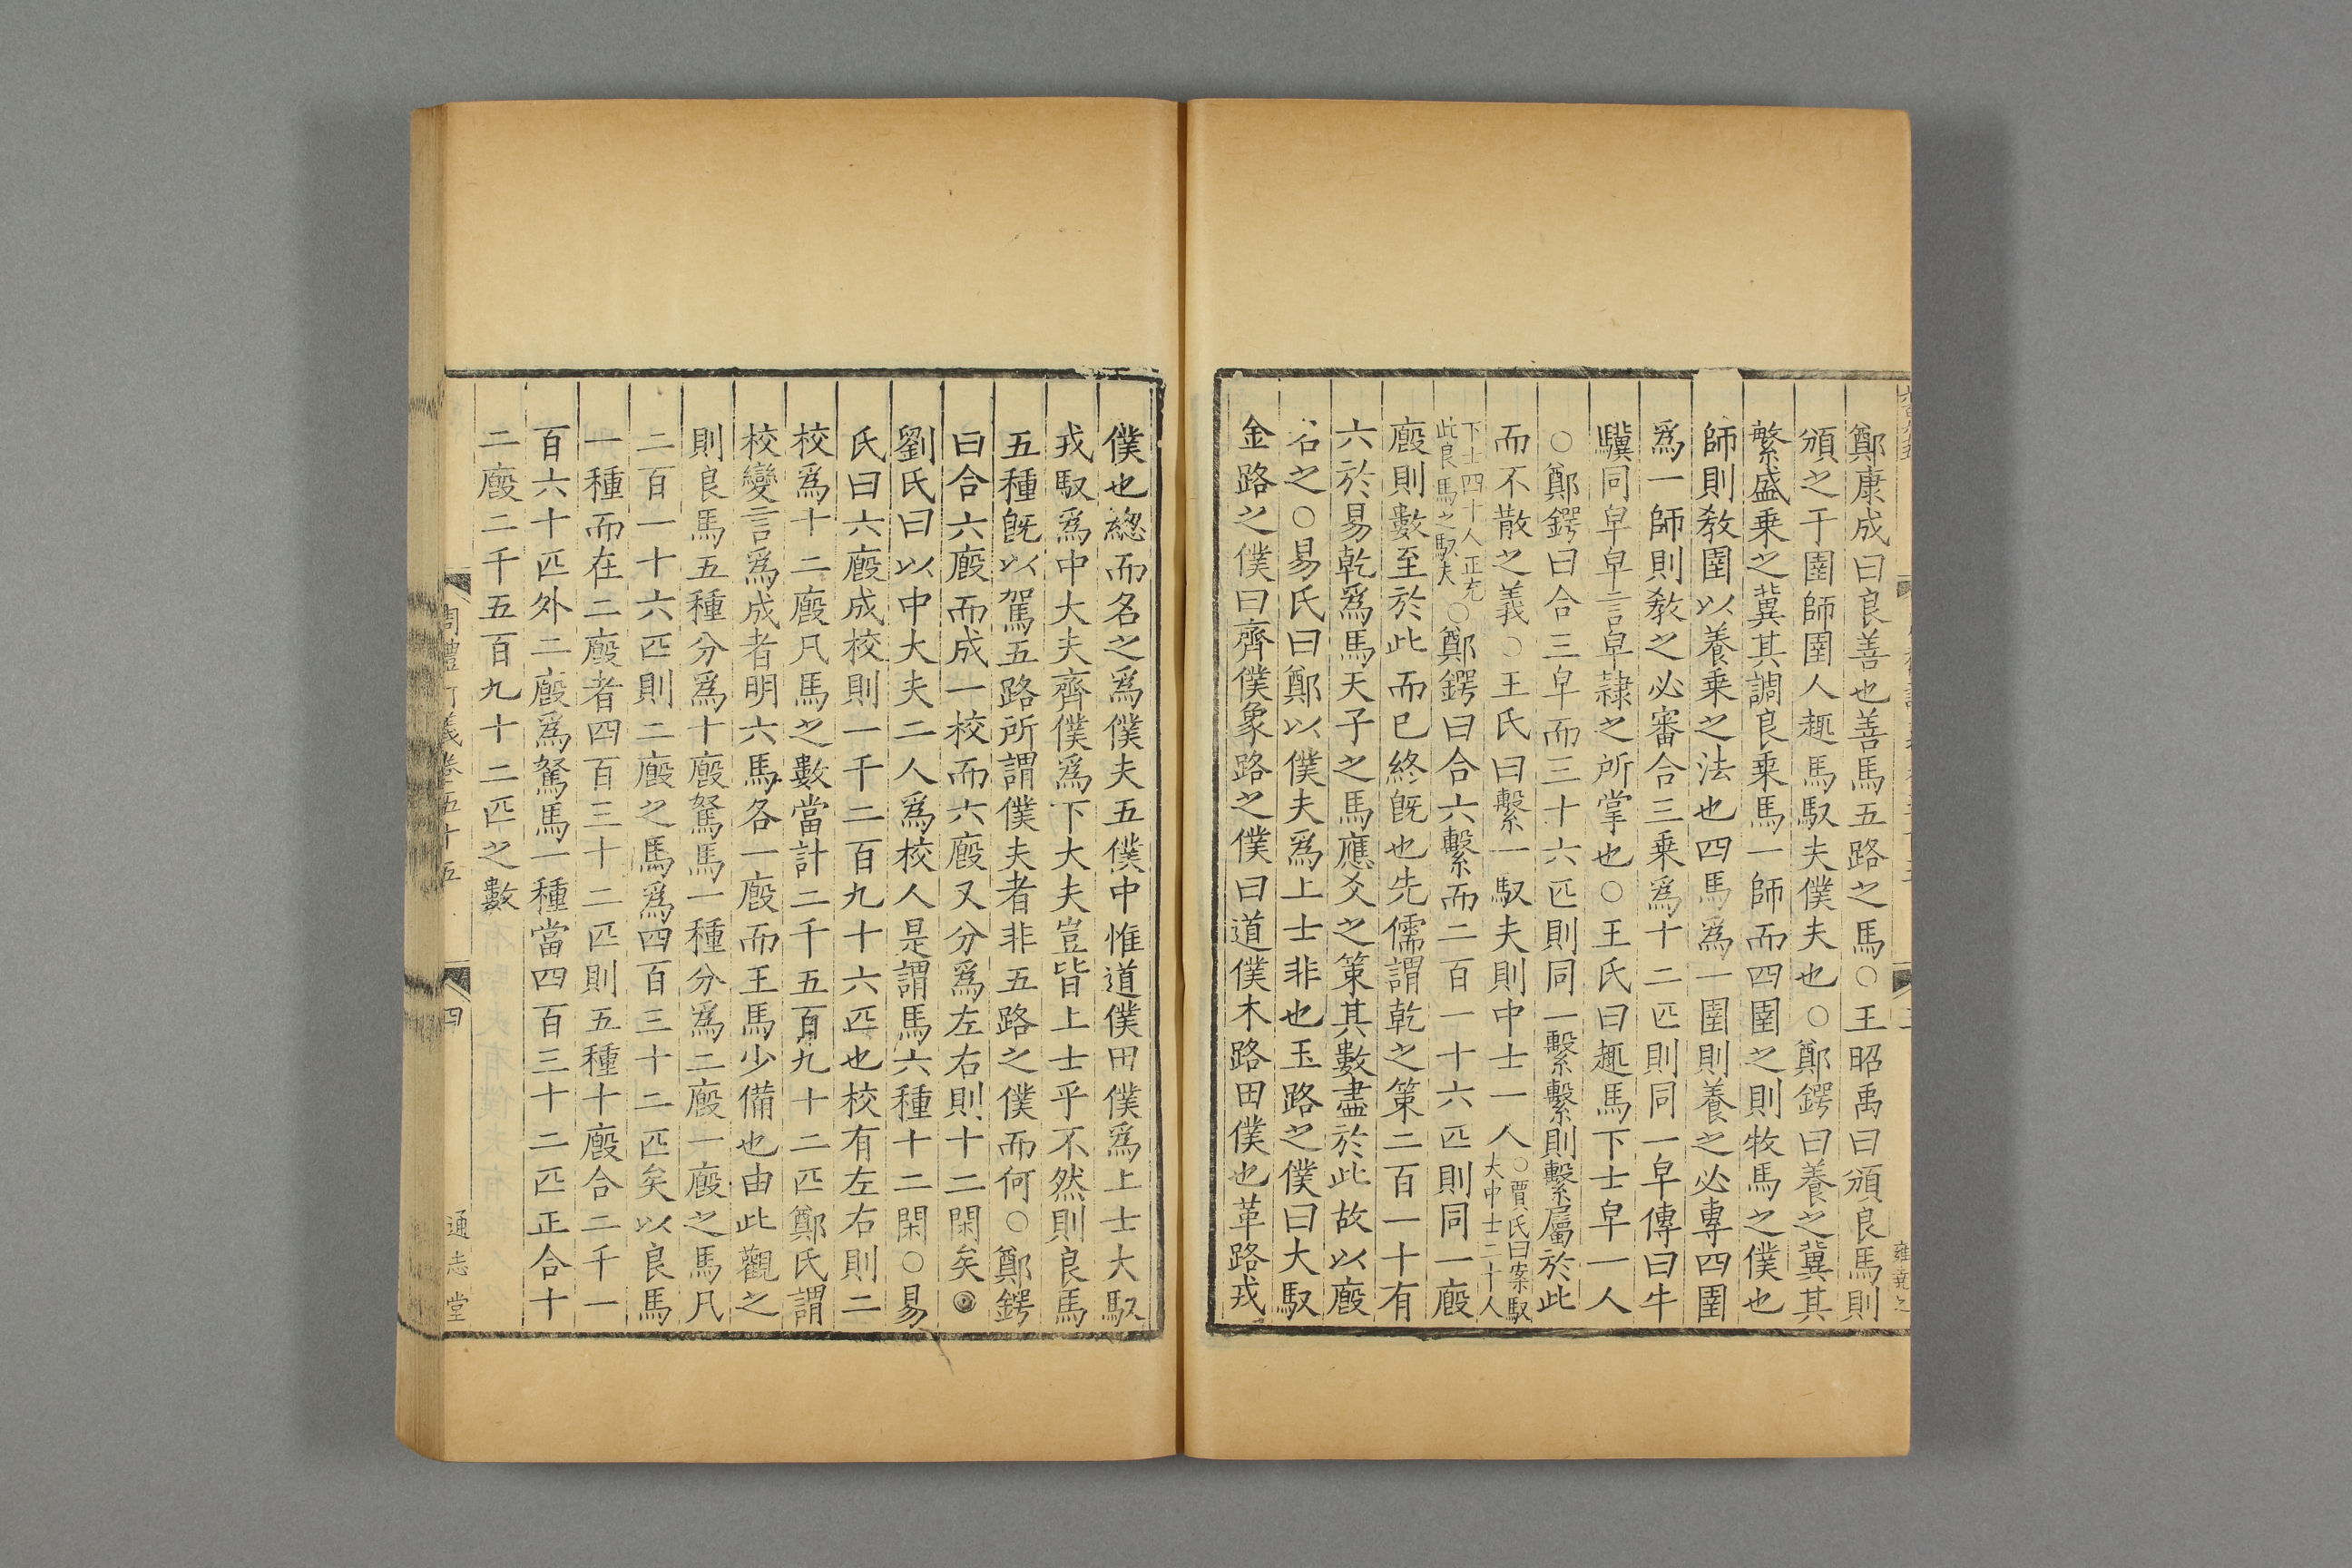 鄭康成曰良善也善馬五路之馬○王昭禹曰頒良馬則
頒之于圉師圉人趣馬馭夫僕夫也○鄭鍔曰養之冀其
繁盛乗之冀其調良乗馬一師而四圉之則牧馬之僕也
師則敎圉以養乗之法也四馬爲一圉則養之必專四圉
爲一師則敎之必審合三乗爲十二匹則同一皁傳曰牛
驥同皁皁言皁隷之所掌也○王氏曰趣馬下士皁一人
○鄭鍔曰合三皁而三十六匹則同一繫繫則繫屬於此
而不散之義○王氏曰繫一馭夫則中士一人○賈氏曰案馭
大中士二十人
下士四十人正充
此良馬之馭夫○鄭鍔曰合六繫而二百一十六匹則同一廏
廏則數至於此而已終旣也先儒謂乾之策二百一十有
六於易乾爲馬天子之馬應爻之策其數盡於此故以廏
名之○易氏曰鄭以僕夫爲上士非也玉路之僕曰大馭
金路之僕曰齊僕象路之僕曰道僕木路田僕也革路戎
僕也緫而名之爲僕夫五僕中惟道僕田僕爲上士大馭
戎馭爲中大夫齊僕爲下大夫豈皆上士乎不然則良馬
五種旣以駕五路所謂僕夫者非五路之僕而何○鄭鍔
曰合六廏而成一校而六廏又分爲左右則十二閑矣◎
劉氏曰以中大夫二人爲校人是謂馬六種十二閑○易
氏曰六廏成校則一千二百九十六匹也校有左右則二
校爲十二廏凡馬之數當計二千五百九十二匹鄭氏謂
校變言爲成者明六馬各一廏而王馬少備也由此觀之
則良馬五種分爲十廏駑馬一種分爲二廏一廏之馬凡
二百一十六匹則二廏之馬爲四百三十二匹矣以良馬
一種而在二廏者四百三十二匹則五種十廏合二千一
百六十匹外二廏爲駑馬一種當四百三十二匹正合十
二廏二千五百九十二匹之數
周禮訂義卷五十五
四
通志堂